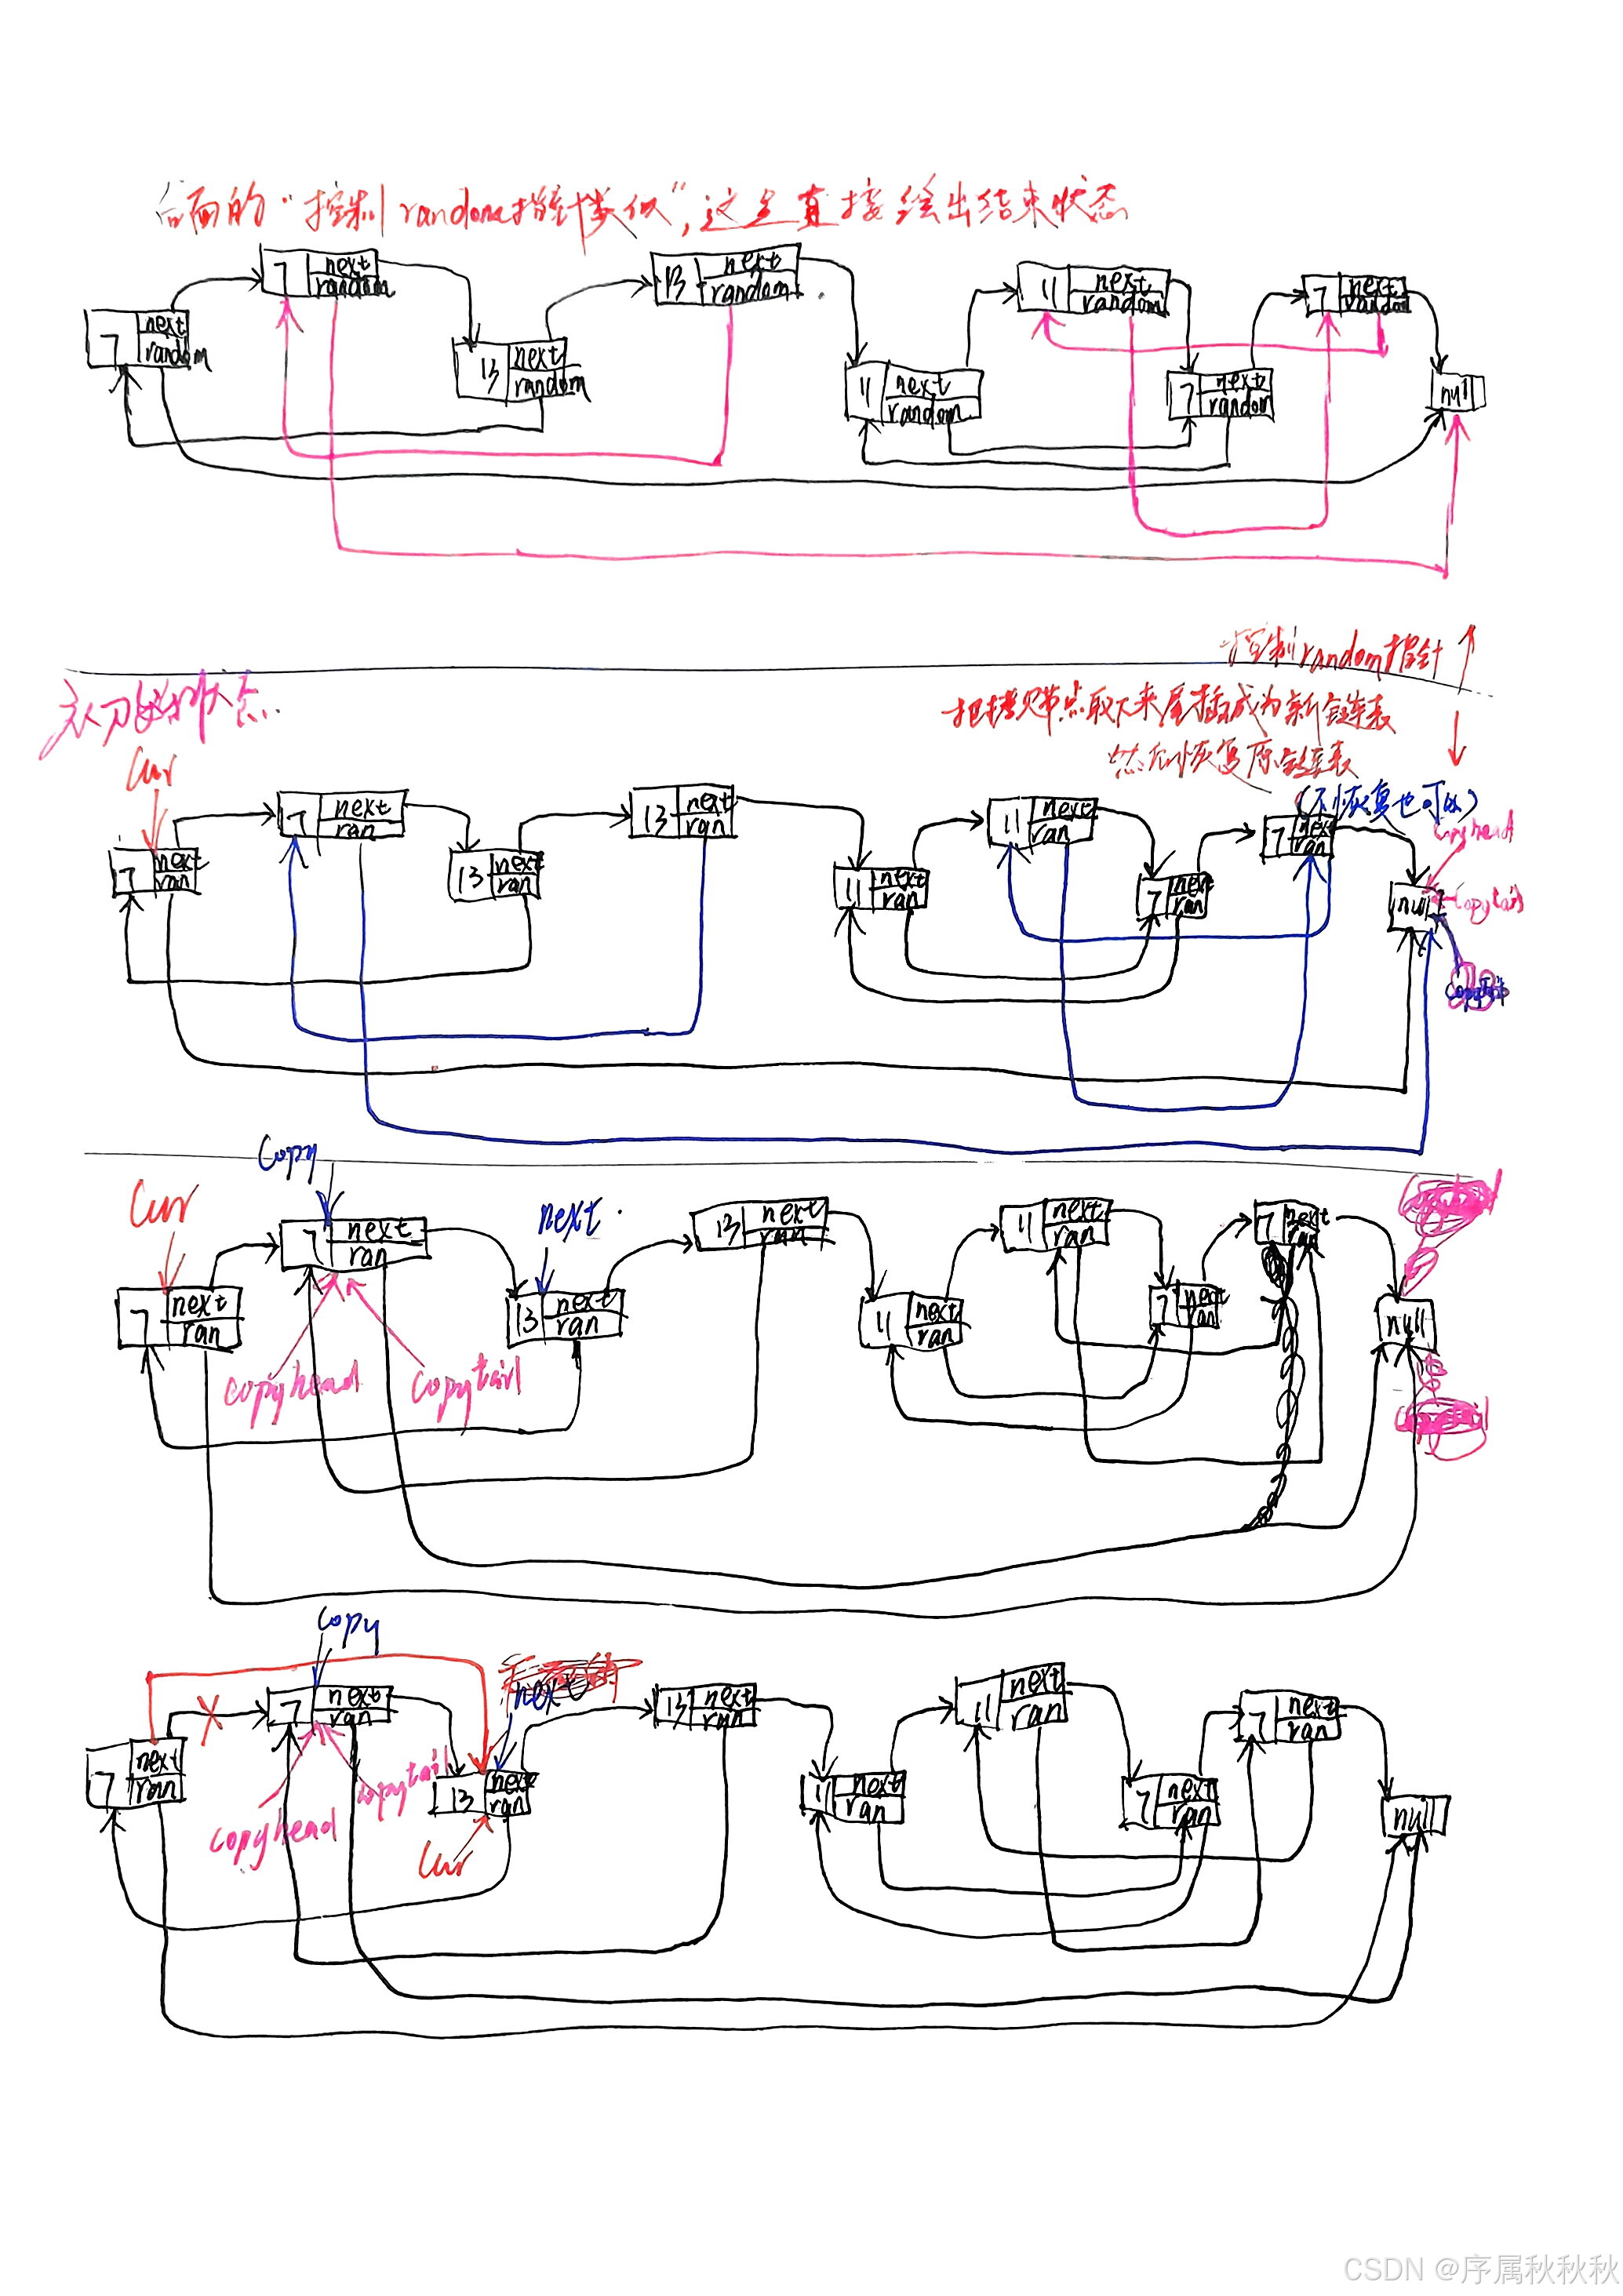 后面的“控制random指针类似”,这里直接绘出结束状态
7 next random
7 next random
13 next random
13 next random
11 next random
11 next random
7 next random
7 next random
null
控制random指针
初始状态
把拷贝节点取下来尾插成为新链表
然后恢复原链表
(不恢复也可以)
Cur
7 next ran
7 next ran
13 next ran
13 next ran
11 next ran
11 next ran
7 next ran
7 next ran
null
Copyhead
Copytail
Copy
Cur
next
7 next ran
7 next ran
13 next ran
13 next ran
11 next ran
11 next ran
7 next ran
7 next ran
null
copyhead
copytail
copy
next
7 next ran
7 next ran
13 next ran
13 next ran
11 next ran
11 next ran
7 next ran
7 next ran
null
copyhead
copytail
Cur
CSDN @序属秋秋秋